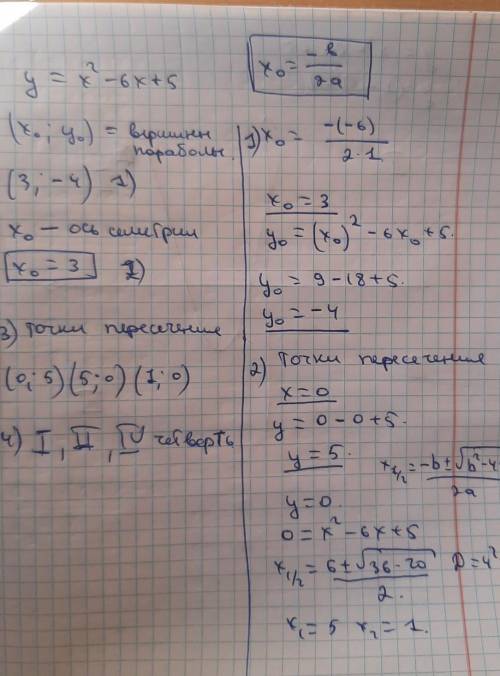 y = x² - 6x + 5
(x₀; y₀) = вершины
параболы.
(3; -4) 1)
x₀ – ось симетрии
x₀ = 3 2)
3) Точки пересечение
(0; 5) (5; 0) (1; 0)
4) I, II, IV четверть
x₀ = -b/2a
1) x₀ = -(-6)/2·1
x₀ = 3
y₀ = (x₀)² - 6x₀ + 5.
y₀ = 9 - 18 + 5.
y₀ = -4
2) Точки пересечение
x = 0
y = 0 - 0 + 5.
y = 5.
x₁/₂ = -b ± √b² - 4/2a
y = 0.
0 = x² - 6x + 5
x₁/₂ = 6 ± √36 - 20/2. D = 4²
x₁ = 5 x₂ = 1.